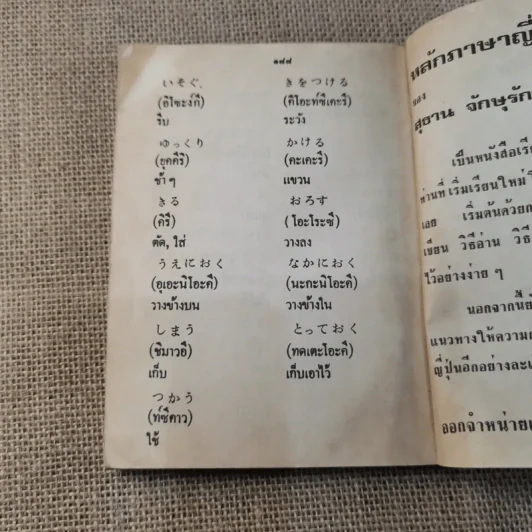 ๑๘๘
いそぐ
(อิโซะงกึ)
รีบ
ゆっくり
(ยุคคึริ)
ช้า ๆ
きる
(คิรึ)
ตัด, ใส่
うえにおく
(อุเอะนิโอะคึ)
วางข้างบน
しまう
(ชิมาวอึ)
เก็บ
つかう
(ท์ซึคาว)
ใช้
きをつける
(คิโอะท์ซึเคะรึ)
ระวัง
かける
(คะเคะรึ)
แขวน
おろす
(โอะโระซึ)
วางลง
なかにおく
(นะกะนิโอะคึ)
วางข้างใน
とっておく
(ทตเตะโอะคึ)
เก็บเอาไว้
หลักภาษาญี่
ของ
สุธาน จักษุรัก
เป็นหนังสือเรี
ท่านที่เริ่มเรียนใหม่
เลย เริ่มต้นด้วยก
เขียน วิธีอ่าน วิธี
ไว้อย่างง่าย ๆ
นอกจากนี้ยั
แนวทางให้ความ
ญี่ปุ่นอีกอย่างละเ
ออกจำหน่ายแ